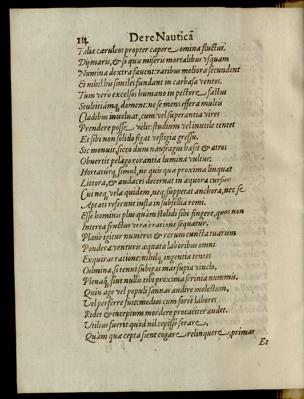 184 De re Nauticã
Talia cæruleos propter capere omina fluctus.
Dij maris, & si qua miseris mortalibus usquam
Numina dextra fauent: ratibus meliora secundent
Et nihil his similes fundant in carbasa ventos.
Tum verò excelsos humano in pectore fastus
Stultitiámq; doment: ne se mens effera multis
Cladibus inuoluat, cum vel superantia vires
Prendere posse velit: studium vel inutile tentet
Et sibi non solido figat vestigia gressu.
Sic monuit, sicco dum naufragus hæsit & atros
Obuertit pelago rorantia lumina vultus:
Hortatúrq; simul, ne quis qua proxima linquat
Littora, & audaces decernat in æquora cursus
Cui neq; vela quidem, neq; suppetat anchora, nec se
Aptati referant iusta in subsellia remi.
Esse hominis plus quàm stolidi sibi fingere, quos non
Interea fructus vera ratione sequatur.
Planè igitur numeros & rerum cuncta suarum
Pondera venturis æquata laboribus omnis
Exquirat ratione: nihilq; ingentia tentet
Culmina, si tenui subigas marsupia vinclo,
Plenáq; sint nulli tibi proxima scrinia nummis.
Quin age vel populi sannas audire molestum,
Vel perferre fuit: modios cum fortè labores
Ridet & inceptum mordere procaciter audet.
Vtilius fuerit quod nil cepisse ferare,
Quàm quæ cepta sient cogare relinquere, primas
Et